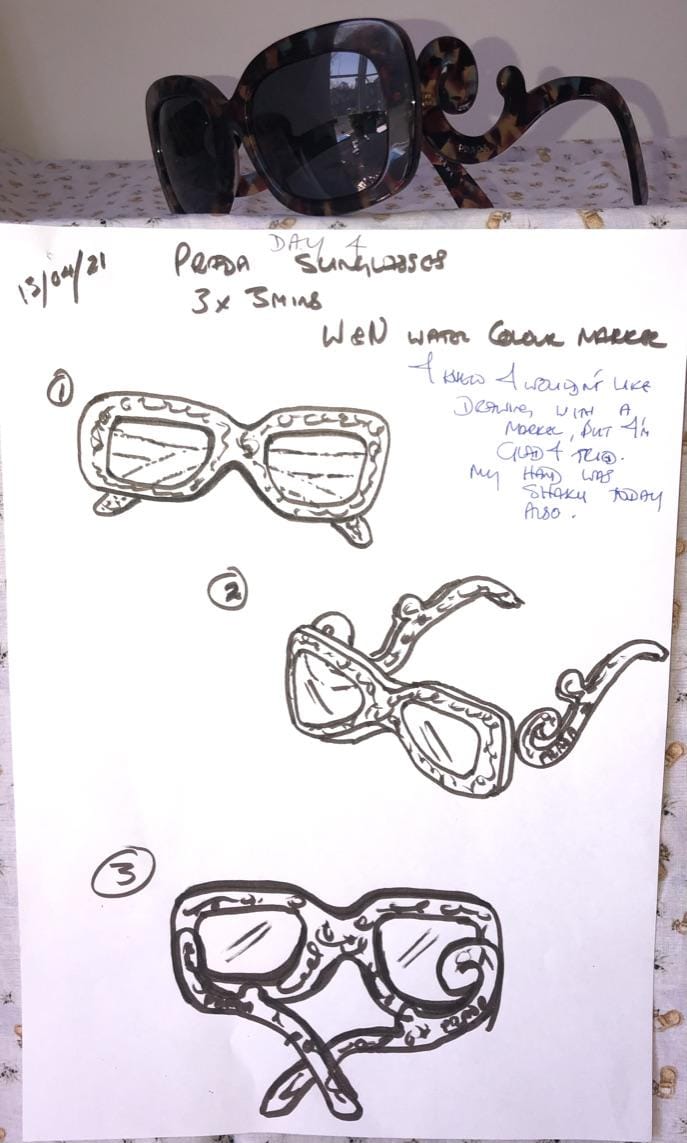 PRADA
13/04/21
DAY 4
PRADA SUNGLASSES
3 x 3 MINS
W&N WATER COLOUR MARKER
I KNEW I WOULDN'T LIKE
DRAWING WITH A
MARKER, BUT I'M
GLAD I TRIED.
MY HAND WAS
SHAKY TODAY
ALSO.
1
2
PRADA
3
PRADA